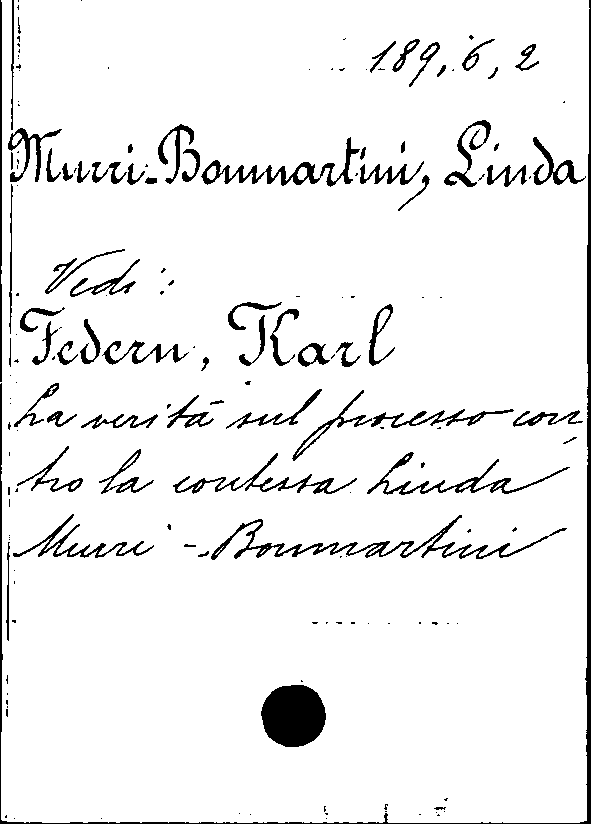 189, 6, 2
Murri-Bonmartini, Linda
Vedi:
Federn, Karl
La verità sul processo con,
tro la contessa Linda
Murri - Bonmartini